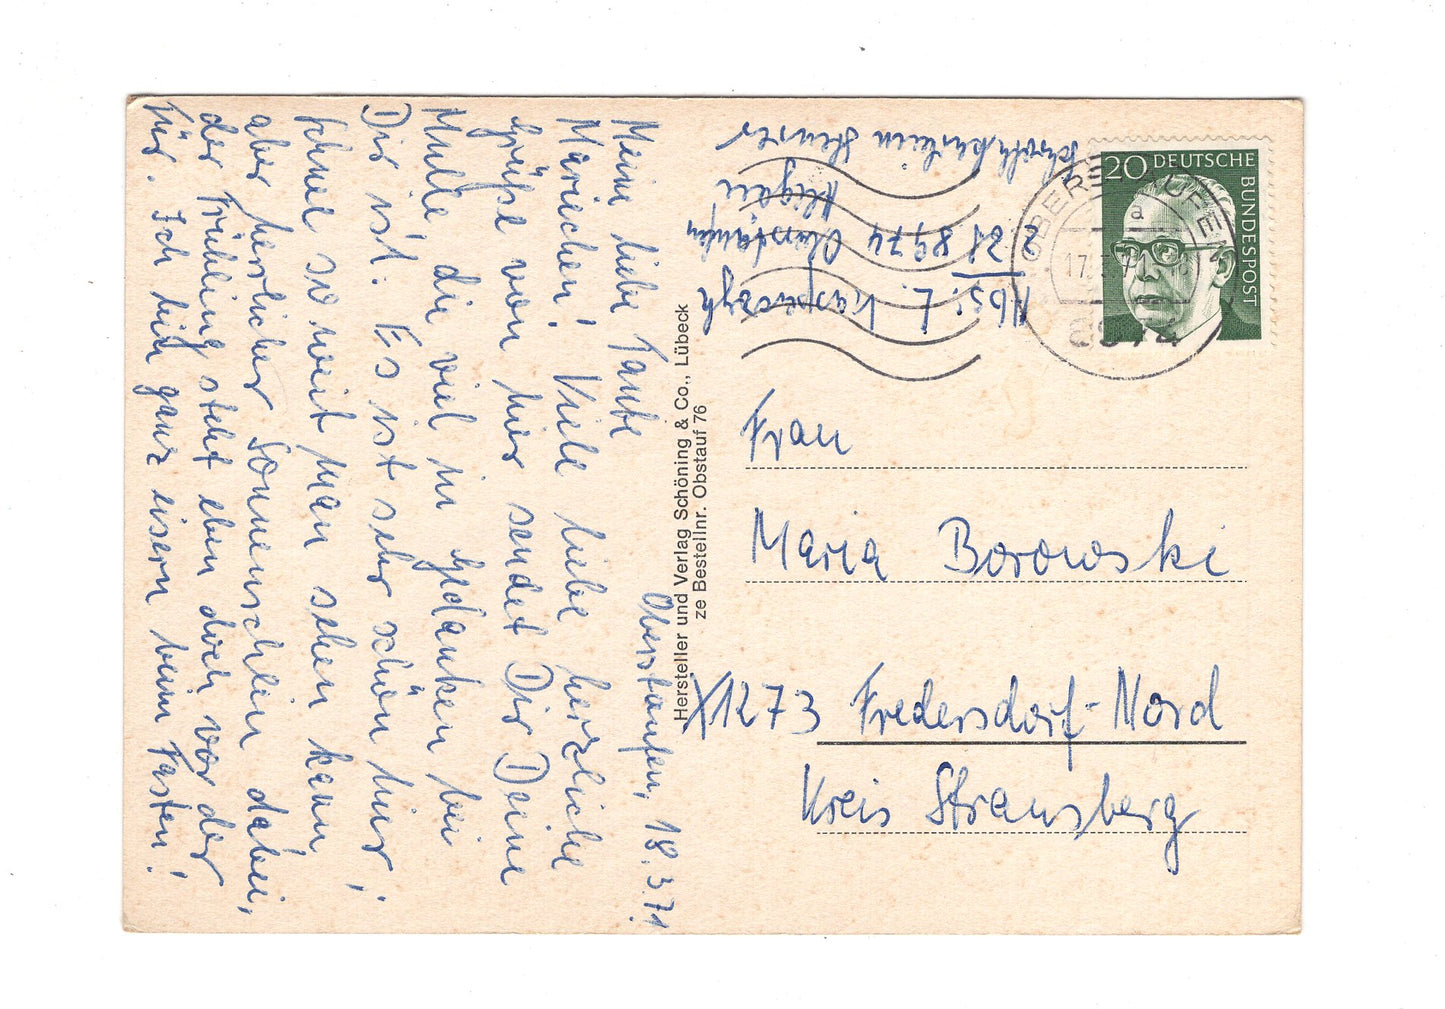 Oberstaufen, 18.3.71
Meine liebe Tante
Mariechen! Viele liebe herzliche
Grüße von hier sendet Dir Deine
Mulle, die viel in Gedanken bei
Dir ist. Es ist sehr schön hier!
Schnee so weit man sehen kann
aber herrlicher Sonnenschein dabei,
der Frühling steht eben doch vor der
Tür. Ich bin ganz eisern beim Fasten!
Hersteller und Verlag Schöning & Co., Lübeck
ze Bestellnr. Obstauf 76
Abs: L.
Z Zt 8974 Oberstaufen
Allgäu
20 DEUTSCHE BUNDESPOST
OBERSTAUFEN
a
17.
8974
Frau
Maria Borowski
X1273 Fredersdorf-Nord
Kreis Strausberg